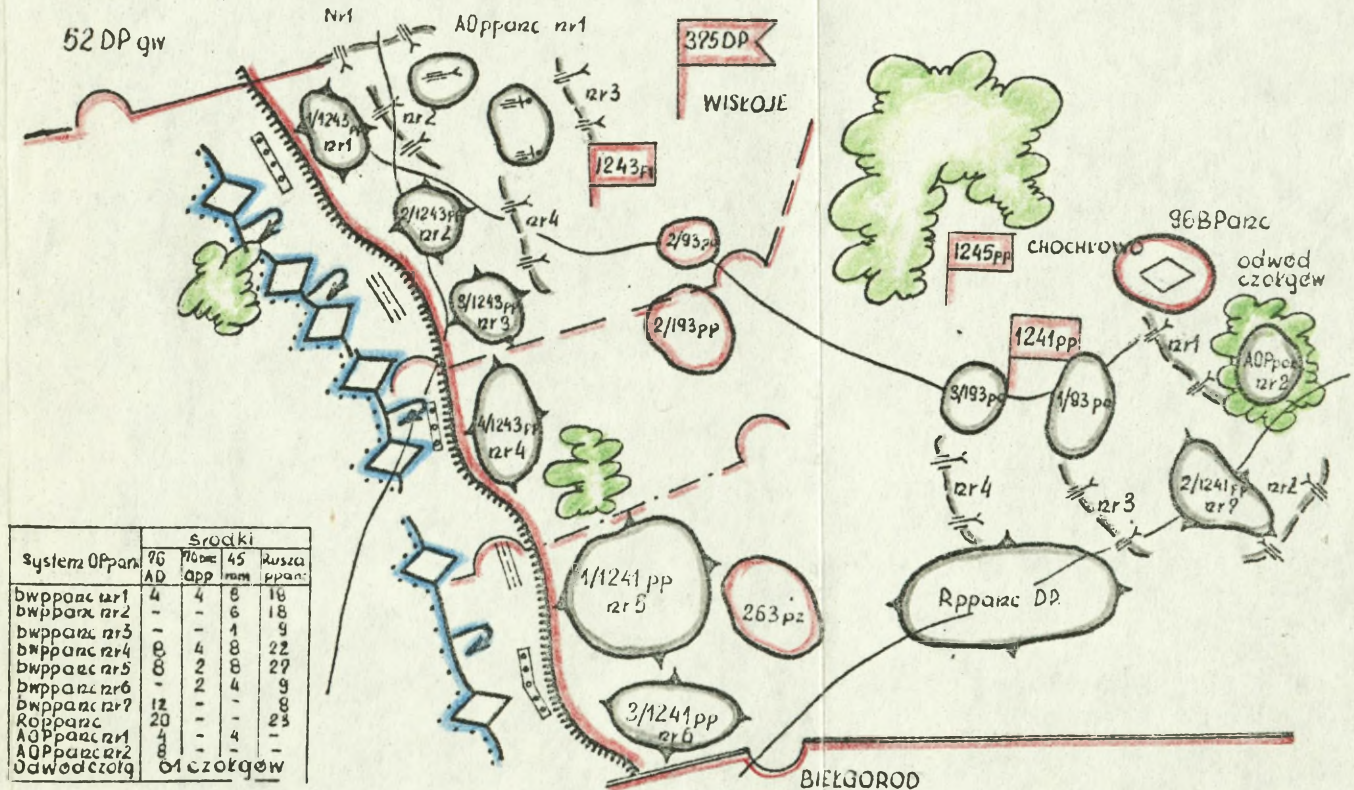 52 DP gw
Nr1
AOppanc nr1
375DP
WISŁOJE
nr2
nr3
1/1243pp
nr1
1243p
2/1243pp
nr2
nr4
3/1243pp
nr3
2/93pa
2/193pp
4/1243pp
nr4
1245pp
CHOCHŁOWO
96BPanc
odwód
czołgów
1241pp
nr1
AOPpanc
nr2
3/193pa
1/93pa
nr4
nr3
2/1241pp
nr7
nr2
1/1241pp
nr5
263pz
Rppanc DP.
3/1241pp
nr6
BIEŁGOROD
System OPpanc
środki
76 AD
45 mm
Rusza ppanc
bwppanc nr1 4 4 6 18
bwppanc nr2 - - 6 18
bwppanc nr3 - - 1 9
bwppanc nr4 8 4 8 22
bwppanc nr5 8 2 8 27
bwppanc nr6 - 2 4 9
bwppanc nr7 12 - - 8
Roppanc 20 - - 23
AOPpanc nr1 4 - 4 -
AOPpanc nr2 8 - - -
Odwód czołg 61 czołgów